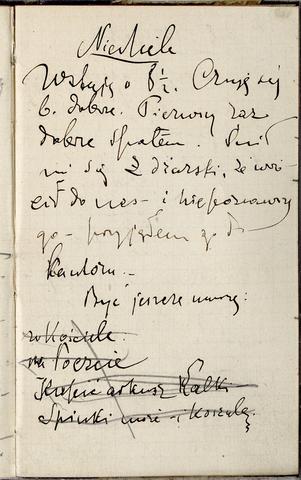 Niedziela
Wstaję o 8½. Czuję się
b. dobrze. Pierwszy raz
dobrze spałem. Śnił
mi się Zdziarski, że wró-
cił do nas i niepoznawszy
go – przyjąłem go do
Kantoru. –
Być jeszcze muszę:
w Kościele.
na Poczcie
Kupić arkusz Kalki
Spinki moje i Koszulę.